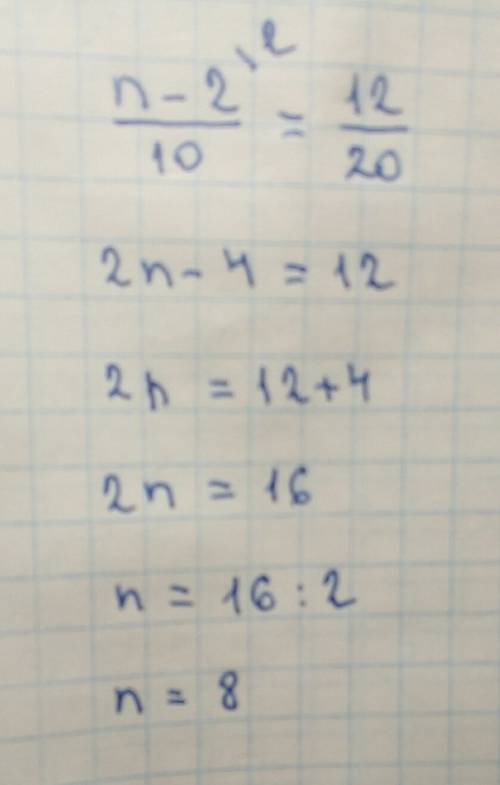 n - 2 \2
10
= 12
20
2n - 4 = 12
2n = 12 + 4
2n = 16
n = 16 : 2
n = 8